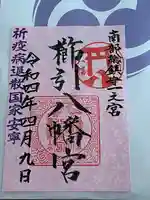 南部総鎮守一之宮
櫛引八幡宮
令和四年四月九日
祈疫病退散国家安寧